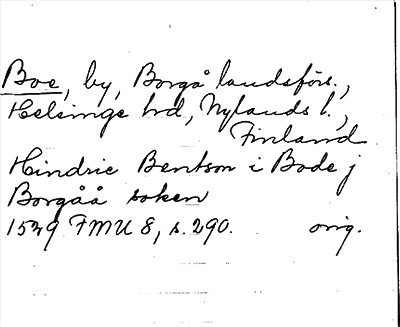 Boe, by, Borgå landsförs.,
Helsinge hrd, Nylands l.,
Finland
Hindric Bentson i Bode j
Borgåå soken
1549 FMU 8, s. 290. orig.